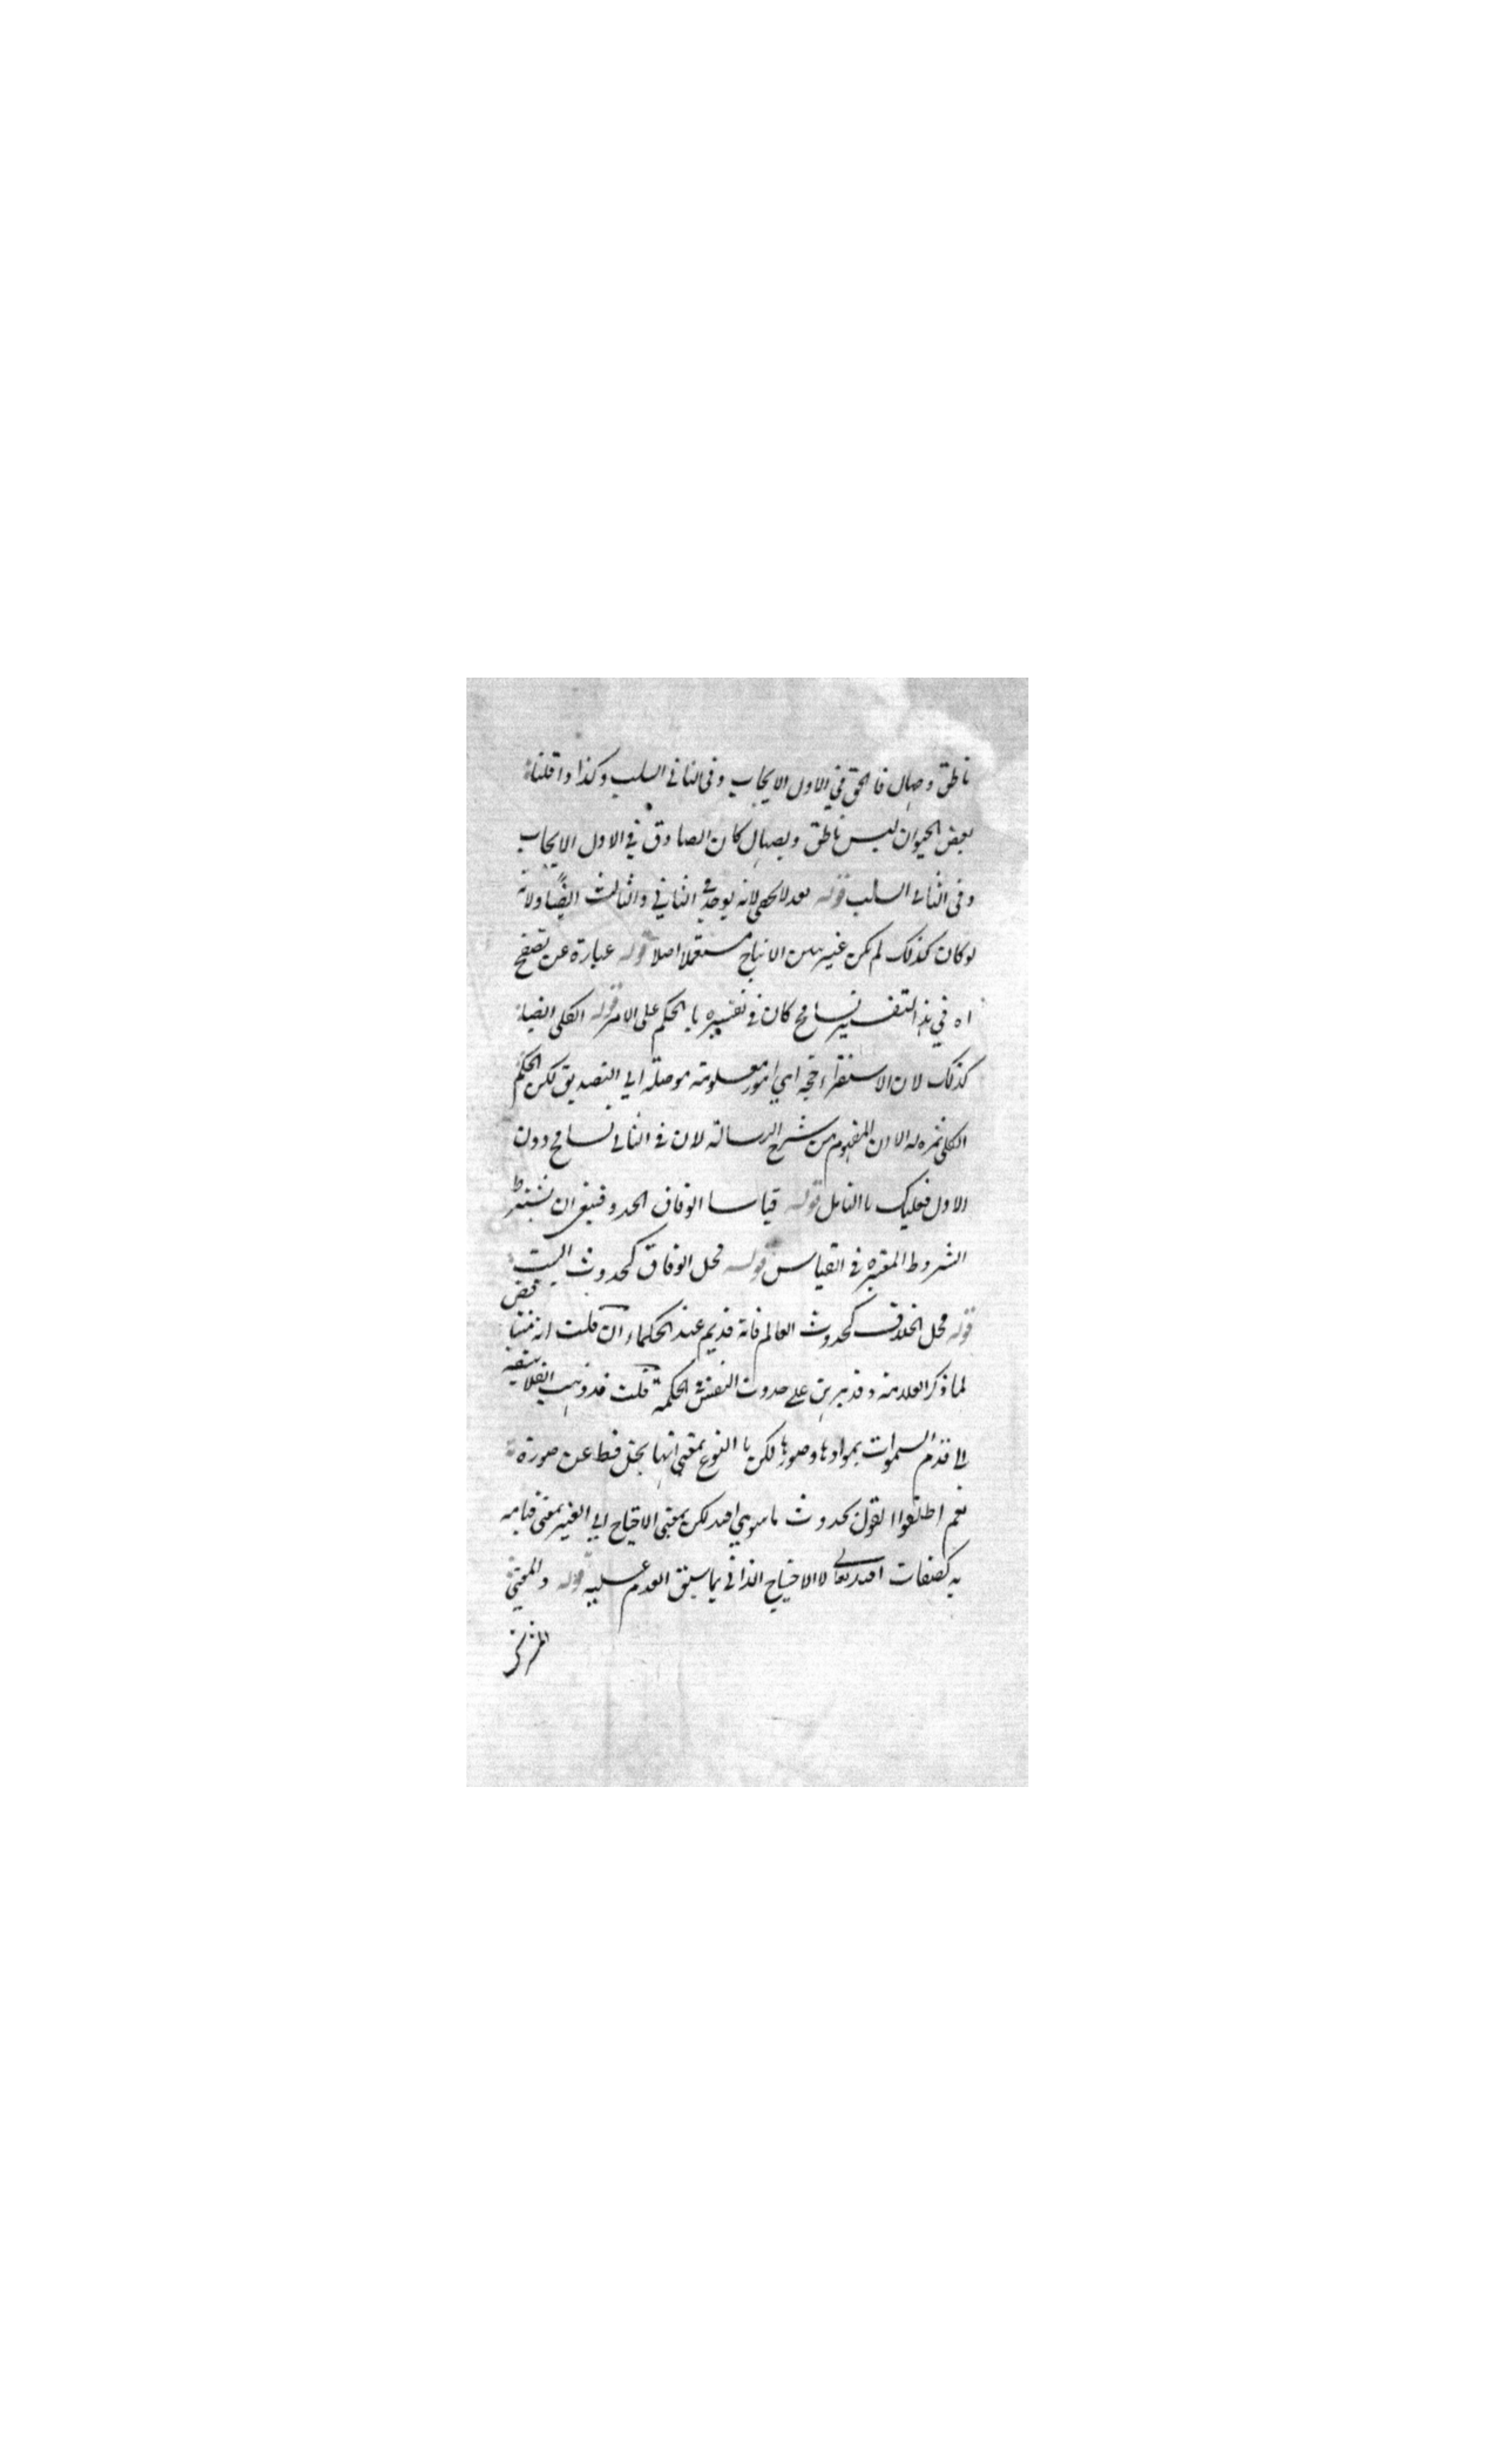 ناطق وصهال فالحق في الاول الايجاب وفي الثاني السلب وكذا اذا قلنا
بعض الحيوان ليس ناطق وبصهال كان الصادق في الاول الايجاب
وفي الثاني السلب قوله بعد لا يحصى لانه يوجد في الثاني والثالث ايضا ولانه
لو كان كذلك لم يكن غير بين الانتاج مستعملا اصلا قوله عبارة عن تصفح
اه في هذا التفسير تسامح كان في تفسيره بالحكم على الامر قوله الكلي ايضا
كذلك لان الاستقراء حجة اي امور معلومة موصلة الى التصديق لكن الحكم
الكلي ثمرة له الا ان المفهوم من شرح الرسالة لان في الثاني تسامح دون
الاول فعليك باالتامل قوله قياسا الوفاق الحد وفينبغي ان تشترط
الشروط المعتبره في القياس قوله محل الوفاق كحدوث البيت
قوله محل الخلاف كحدوث العالم فانه قديم عند الحكماء ان قلت انه مناقض
لما ذكر العلامه وقد برهن على حدوث النفس الحكمة قلت قد ذهب الفلاسفه
الى قدم السموات بموادها وصورها لكن باالنوع بمعنى انها لم يخل قط عن صورة
نعم اطلقوا القول بحدوث ما سوى الله لكن بمعنى الاحتياج الى الغير بمعنى قيامه
به كصفات الله تعالى لا الاحتياج الذاتي بما سبق العدم عليه قوله والمعنى
المشترك